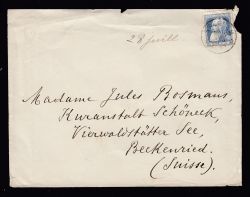 28 juill
Madame Jules Bosmans,
Kuranstalt Schöneck,
Vierwaldstätter See,
Beckenried.
(Suisse).